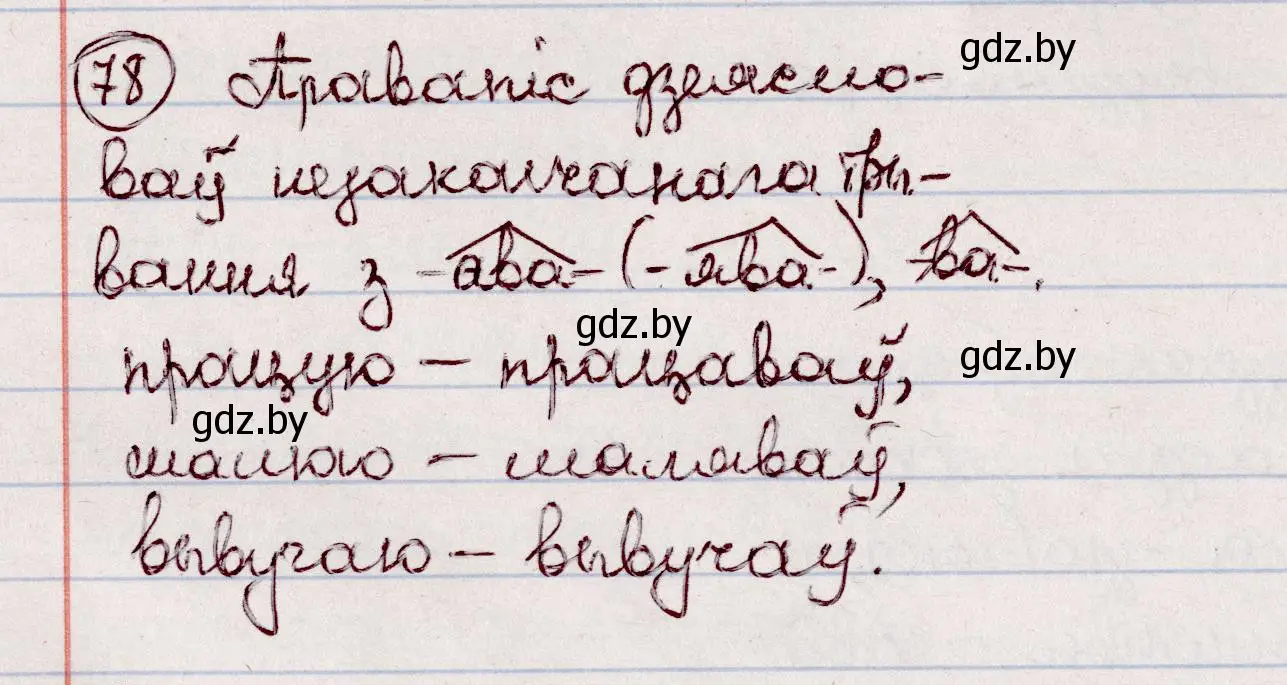 78 Правапіс дзеясло- gdz.by
ваў незакончанага тры-
вання з -ава- (-ява-), -ва-.
gdz.by
працую – працаваў, gdz.by
gdz.by
малюю – маляваў,
вывучаю – вывучаў.